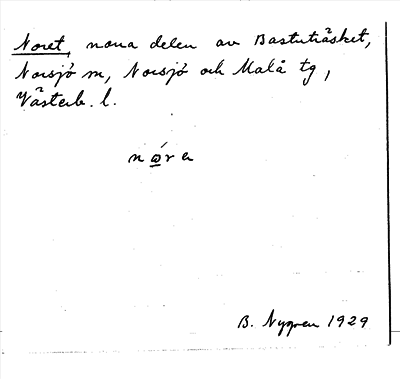 Noret, norra delen av Bastuträsket,
Norsjö sn, Norsjö och Malå tg,
Västerb. l.
nørɐ
B. Nygren 1929